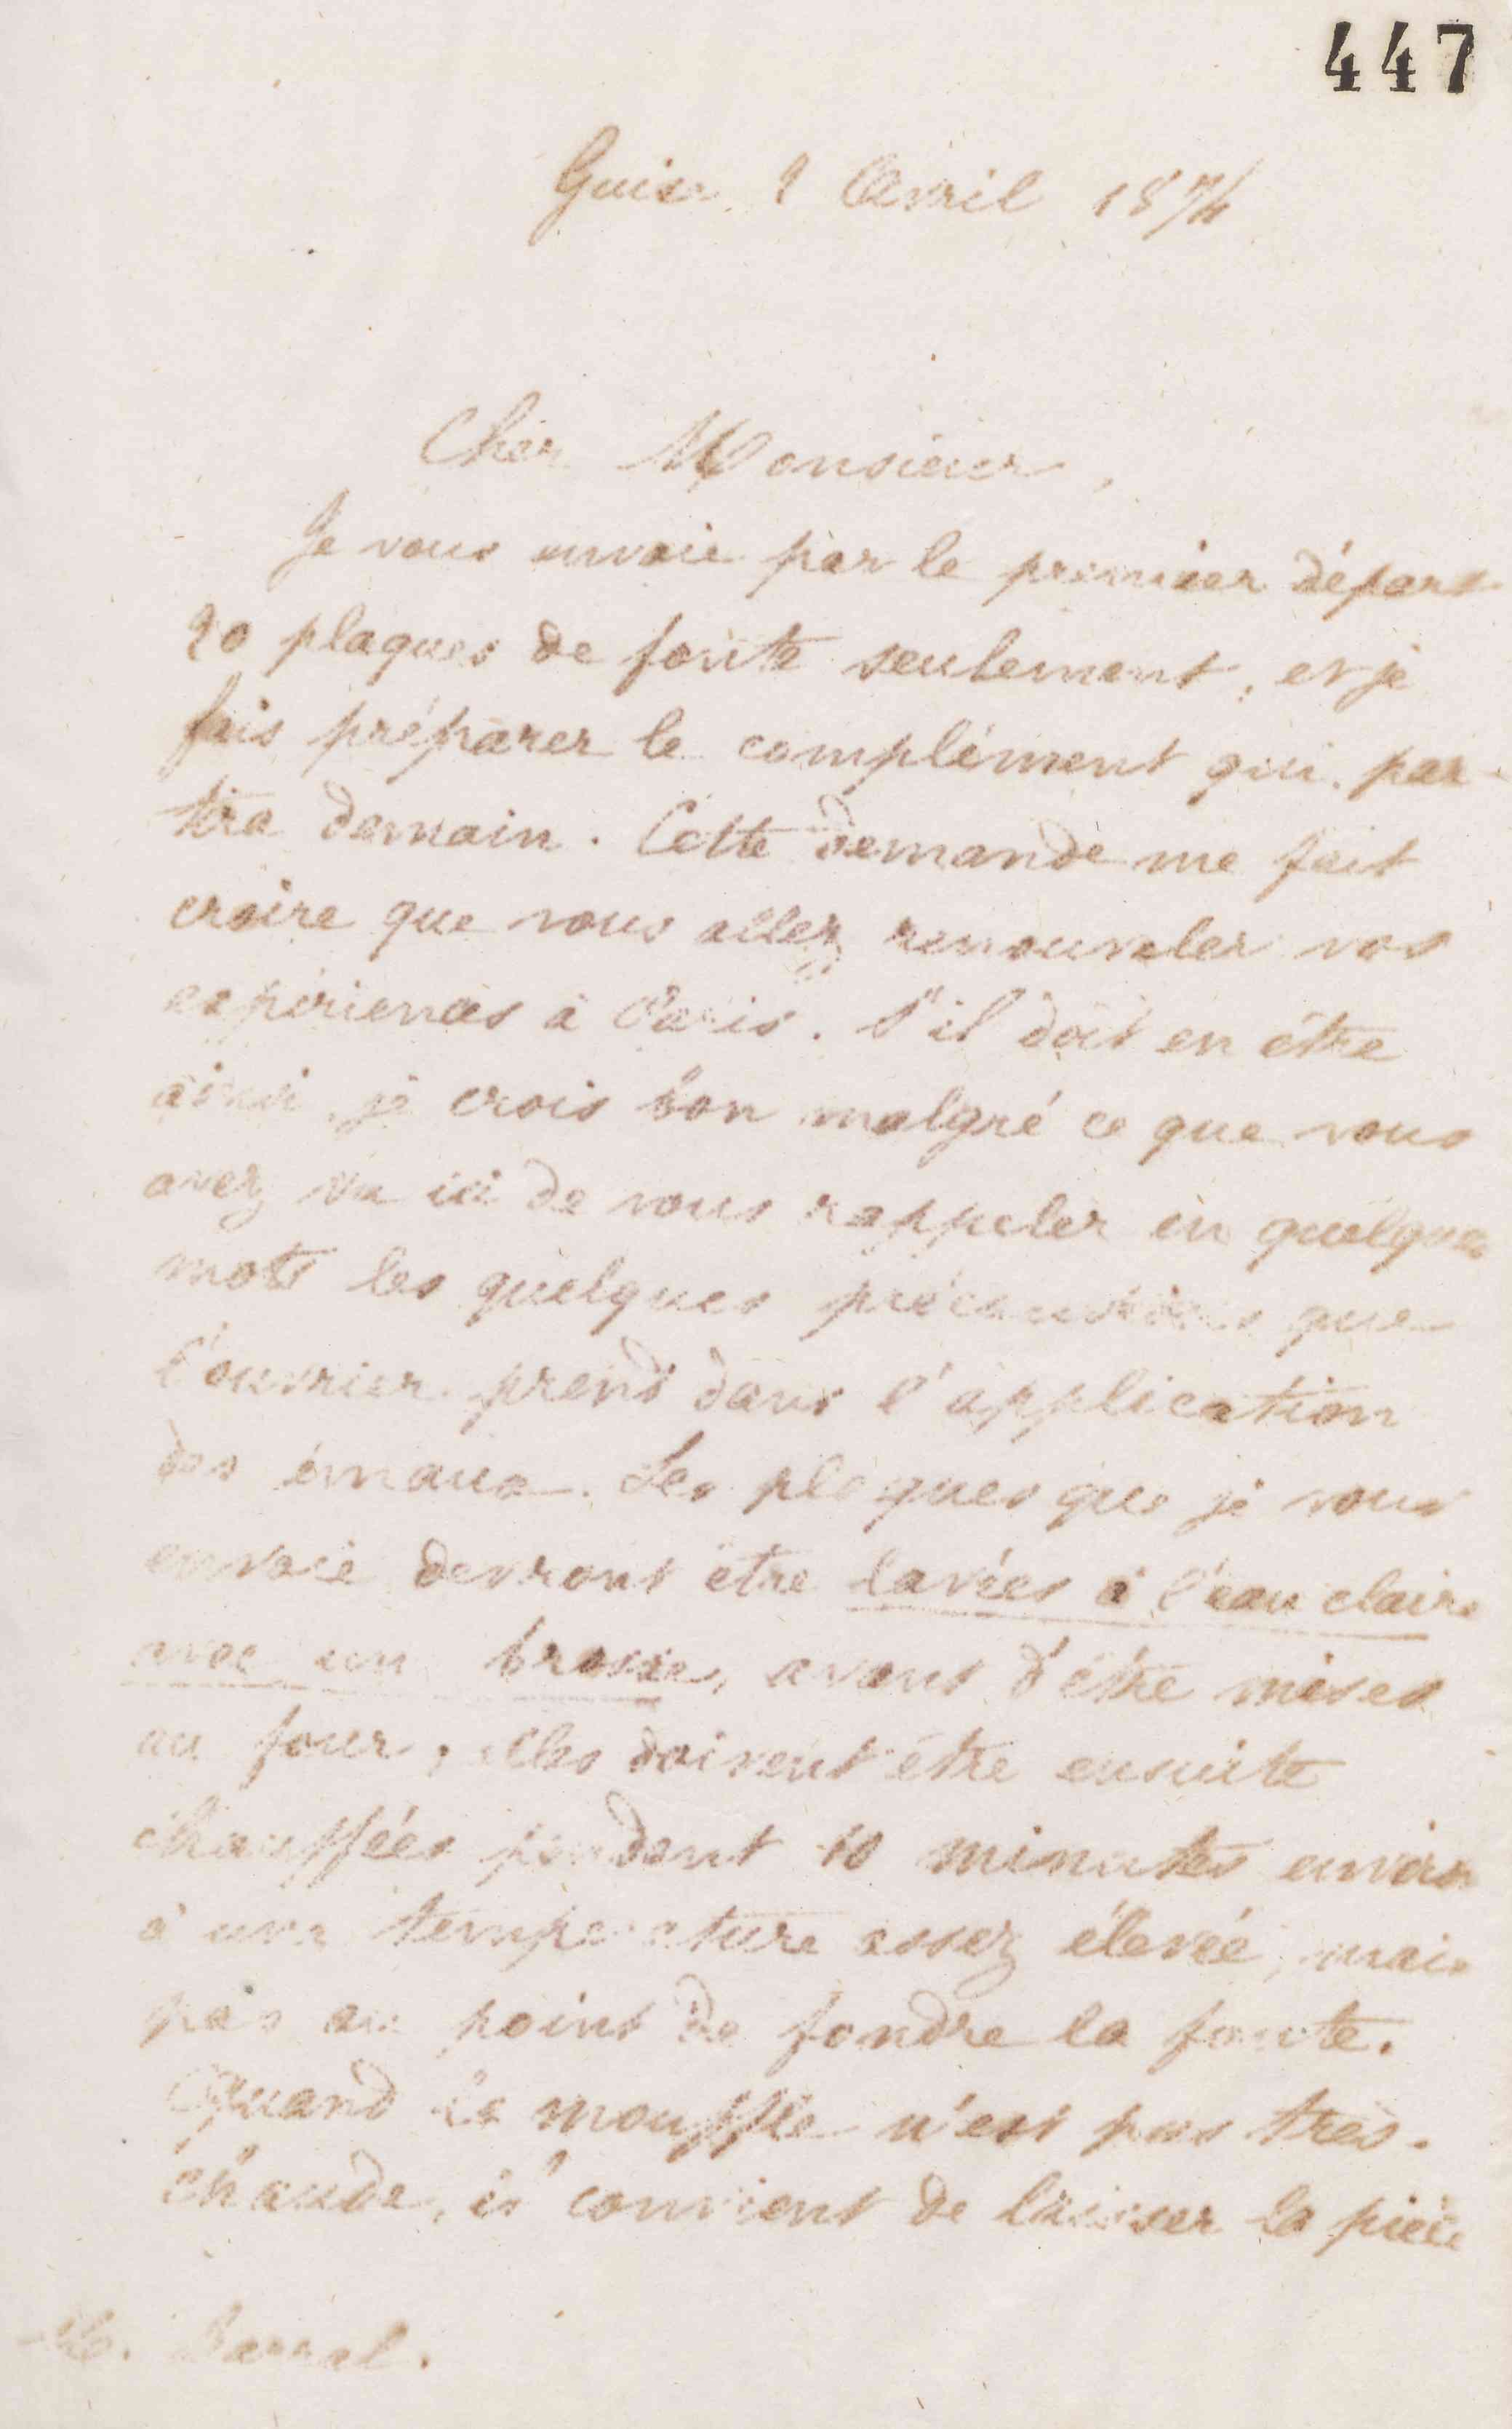 447
Guise 9 Avril 1874
Cher Monsieur,
Je vous envoie par le premier départ
20 plaques de fonte seulement, et je
fais préparer le complément qui par-
tira demain. Cette demande me fait
croire que vous allez renouveler vos
expériences à Paris. S'il doit en être
ainsi, je crois bon malgré ce que vous
avez vu ici de vous rappeler en quelques
mots les quelques précautions que
l'ouvrier prend dans l'application
des émaux. Les plaques que je vous
envoie devront être lavées à l'eau claire
avec un brosse, avant d'être mises
au four, elles doivent être ensuite
chauffées pendant 10 minutes environ
à une température assez élevée, mais
pas au point de fondre la fonte.
Quand la mouffle n'est pas très-
chaude, il convient de laisser la pièce
M. Barral.